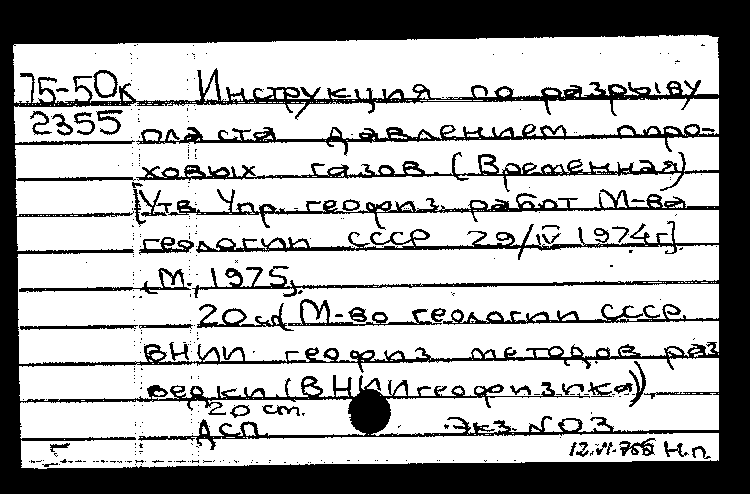 75-50к Инструкция по разрыву
2355 пласта давлением поро-
ховых газов. (Временная)
[Утв. Упр. геофиз. работ М-ва
геологии СССР 29/IV 1974г]
[М., 1975].
20 с. (М-во геологии СССР.
ВНИИ геофиз. методов раз
ведки. (ВНИИгеофизика)).
20 ст.
ДСП. Экз. №03.
12.VI.75 Н.п.